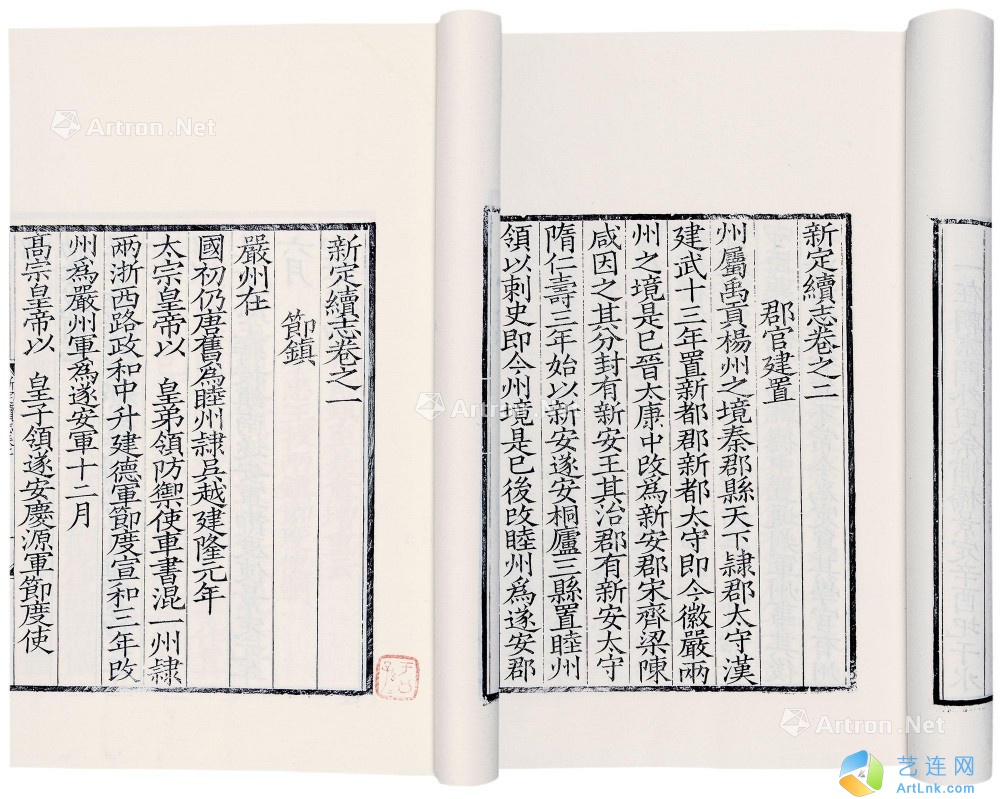 新定續志卷之二
郡官建置
州屬禹貢楊州之境秦郡縣天下隷郡太守漢
建武十三年置新都郡新都太守即今徽嚴兩
州之境是已晉太康中改爲新安郡宋齊梁陳
咸因之其分封有新安王其治郡有新安太守
隋仁壽三年始以新安遂安桐廬三縣置睦州
領以刺史即今州境是已後改睦州爲遂安郡
新定續志卷之一
節鎮
嚴州在
國初仍唐舊爲睦州隷吳越建隆元年
太宗皇帝以 皇弟領防禦使車書混一州隷
兩浙西路政和中升建德軍節度宣和三年改
州爲嚴州軍爲遂安軍十二月
髙宗皇帝以 皇子領遂安慶源軍節度使
Artron.Net
Artron.Net
Artron.Net
艺连网
ArtLnk.com